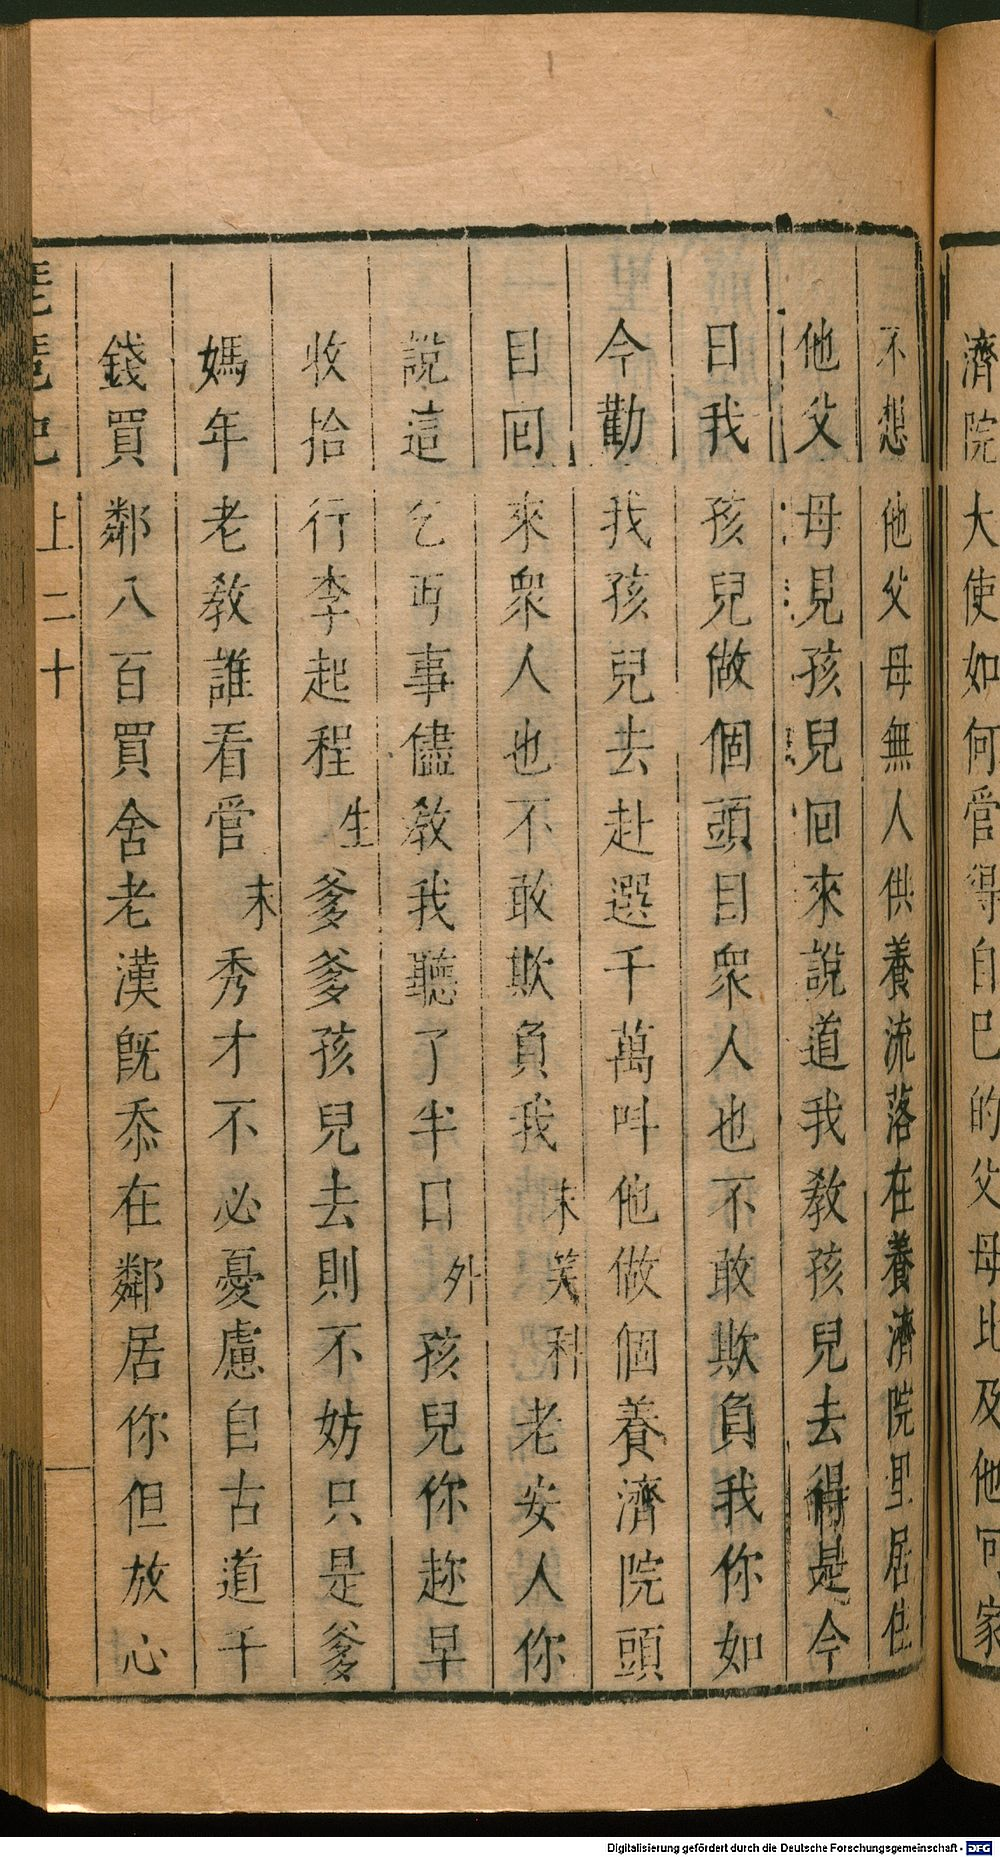 濟院大使如何管得自巳的父母比及他可家
不想他父母無人供養流落在養濟院里居住
他父母見孩兒囘來說道我教孩兒去得是今
日我孩兒做個頭目衆人也不敢欺負我你如
今勸我孩兒去赴選千萬呌他做個養濟院頭
目囘來衆人也不敢欺負我末笑科老安人你
說這乞丐事儘教我聽了半口外孩兒你趂早
收拾行李起程生爹爹孩兒去則不妨只是爹
媽年老教誰看管末秀才不必憂慮自古道千
錢買鄰八百買舍老漢旣忝在鄰居你但放心
琵琶記 上 二十
Digitalisierung gefördert durch die Deutsche Forschungsgemeinschaft - DFG